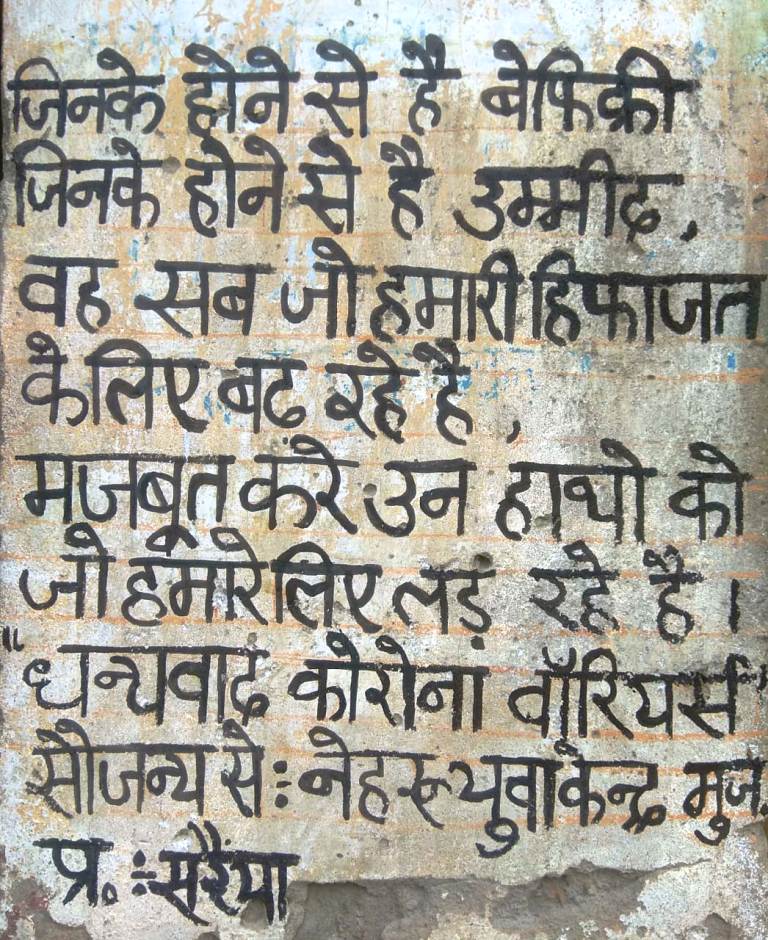 जिनके होने से है बेफिक्री
जिनके होने से है उम्मीद,
वह सब जो हमारी हिफाजत
के लिए बढ रहे है,
मजबूत करे उन हाथो को
जो हमारे लिए लड़ रहे है।
"धन्यवाद कोरोना वॉरियर्स"
सौजन्य से:- नेहरू युवा केन्द्र मुज.
प्र.:- सरैया